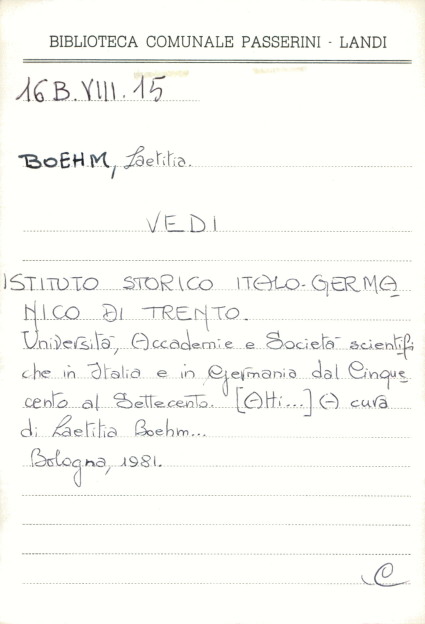 BIBLIOTECA COMUNALE PASSERINI - LANDI
16 B. VIII. 15
BOEHM, Laetitia.
VEDI
ISTITUTO STORICO ITALO-GERMA
NICO DI TRENTO.
Università, Accademie e Società scientifi
che in Italia e in Germania dal Cinque
cento al Settecento. [Atti...] A cura
di Laetitia Boehm...
Bologna, 1981.
C